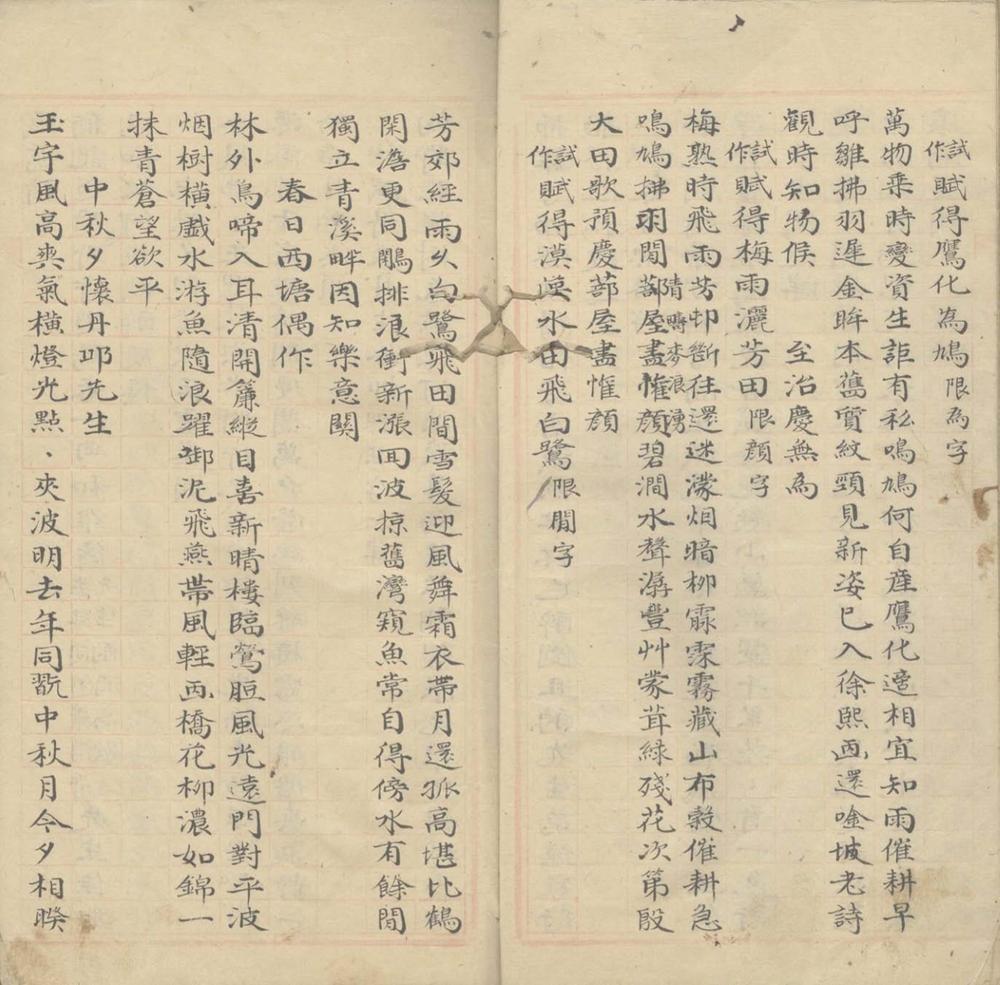 試作賦得鷹化為鳩限為字
萬物乗時變資生詎有私鳴鳩何自産鷹化適相宜知雨催耕早
呼雛拂羽遲金眸本舊質紋頸見新姿已入徐熙画還唫坡老詩
觀時知物候　至治慶無為
試作賦得梅雨灑芳田限顏字
梅熟時飛雨芳邨斷往還迷濛烟暗柳霢霂霧藏山布穀催耕急
隋疇麥浪湧
鳴鳩拂羽閒蔀屋盡惟顏碧澗水聲潺豐艸蒙茸緑殘花次第殷
大田歌預慶蔀屋盡惟顏
試作賦得漠漠水田飛白鷺限閒字
芳郊經雨久白鷺飛田間雪髮迎風舞霜衣帯月還孤高堪比鶴
閑澹更同鷳排浪衝新漲回波掠舊灣窺魚常自得傍水有餘閒
獨立青溪畔因知樂意関
春日西塘偶作
林外鳥啼入耳清開簾縱目喜新晴樓臨鶯脰風光遠門對平波
烟樹横戲水游魚隨浪躍啣泥飛燕帯風輕画橋花柳濃如錦一
抹青蒼望欲平
中秋夕懷丹叩先生
玉宇風高爽氣横燈光點、夾波明去年同翫中秋月今夕相睽